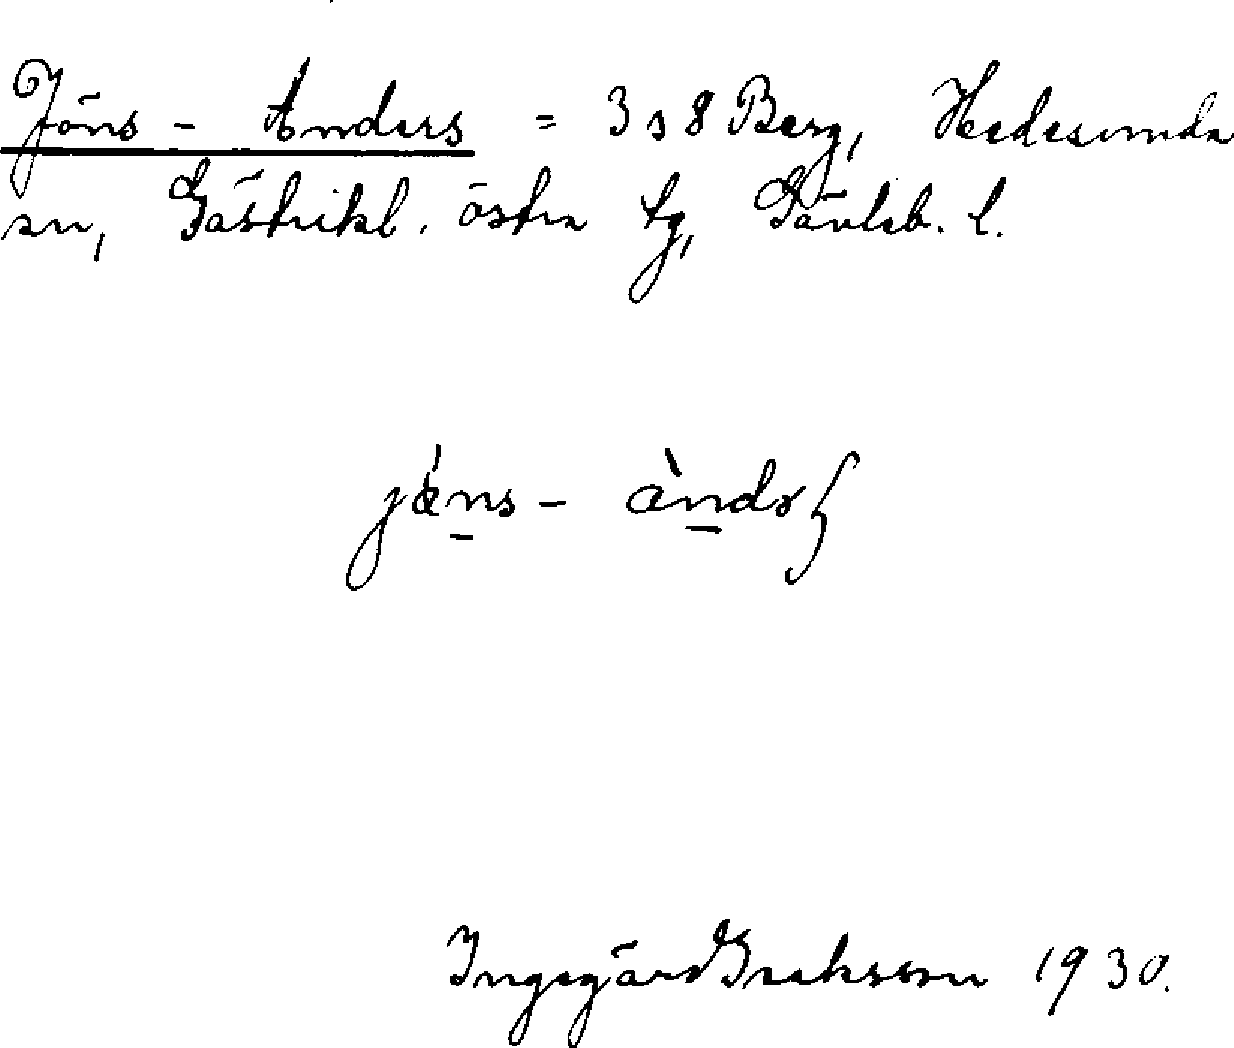 Jöns - Anders = 3 s 8 Berg, Hedesunda
sn, Gästrikl. östra tg, Gävleb. l.
jǿns - àndr
Ingegärd Isaksson 1930.